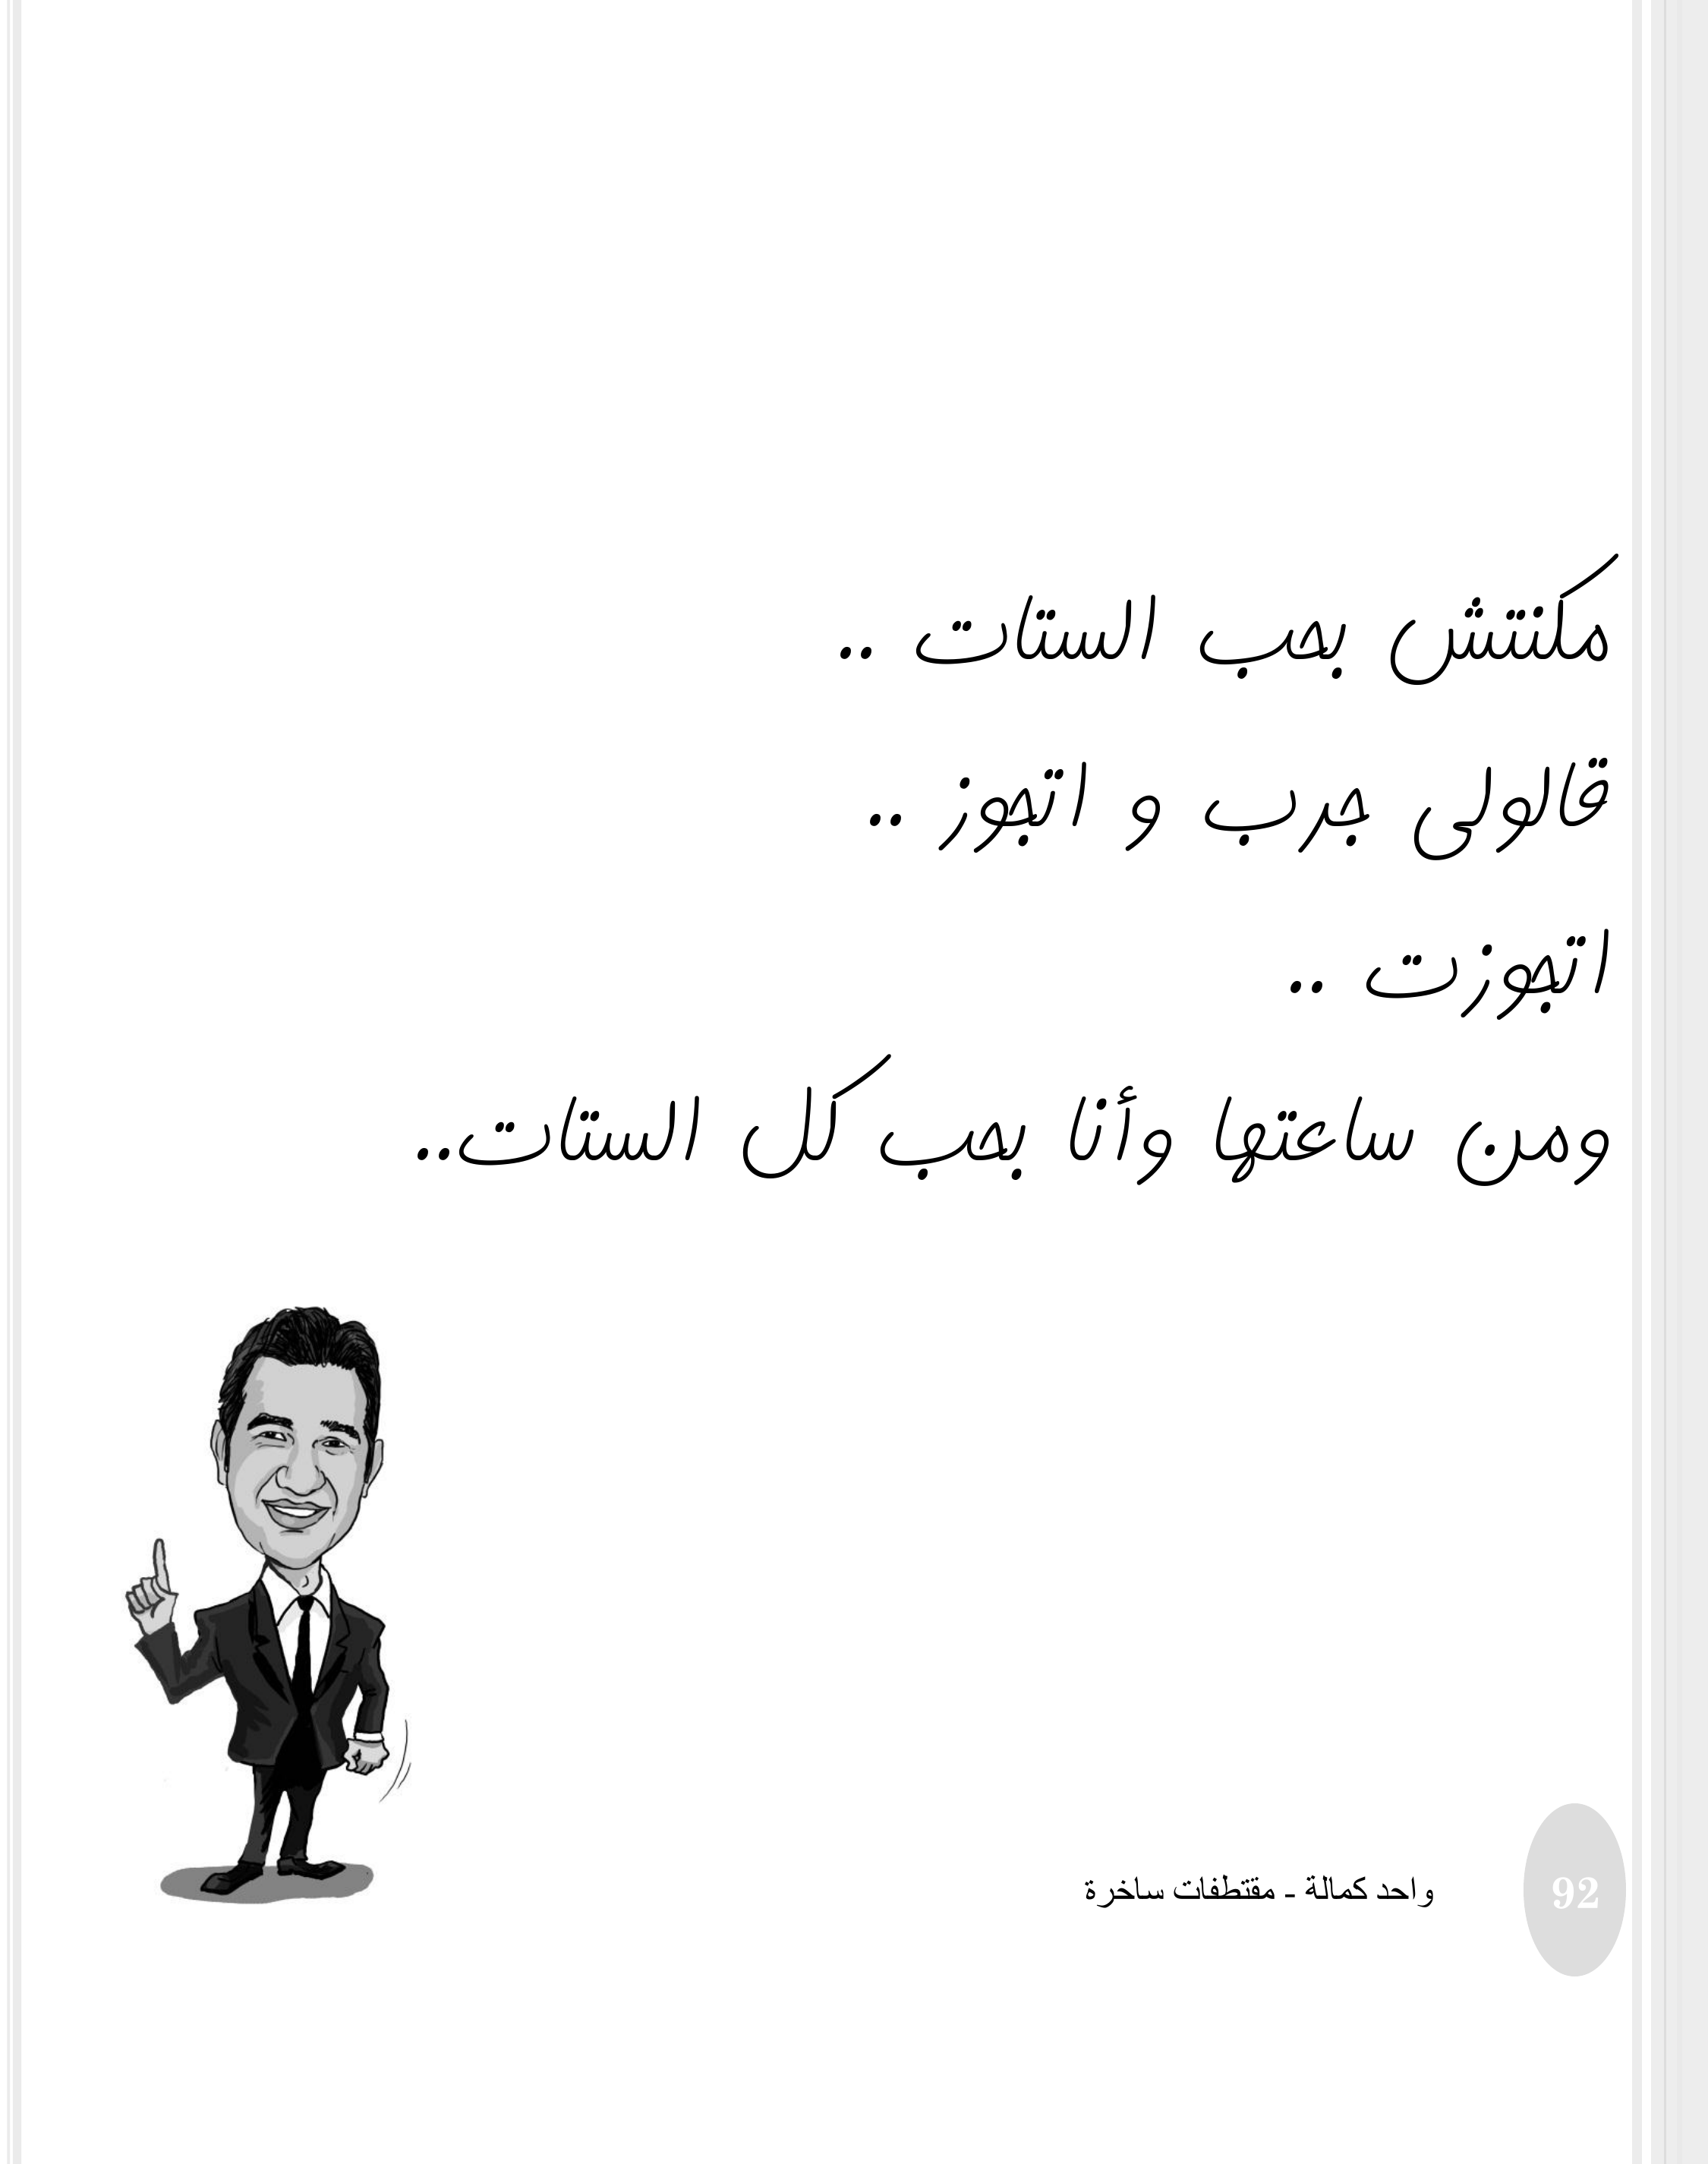 مكنتش بحب الستات ..
قالولى جرب و اتجوز ..
اتجوزت ..
ومن ساعتها وأنا بحب كل الستات..
واحد كمالة - مقتطفات ساخرة
92